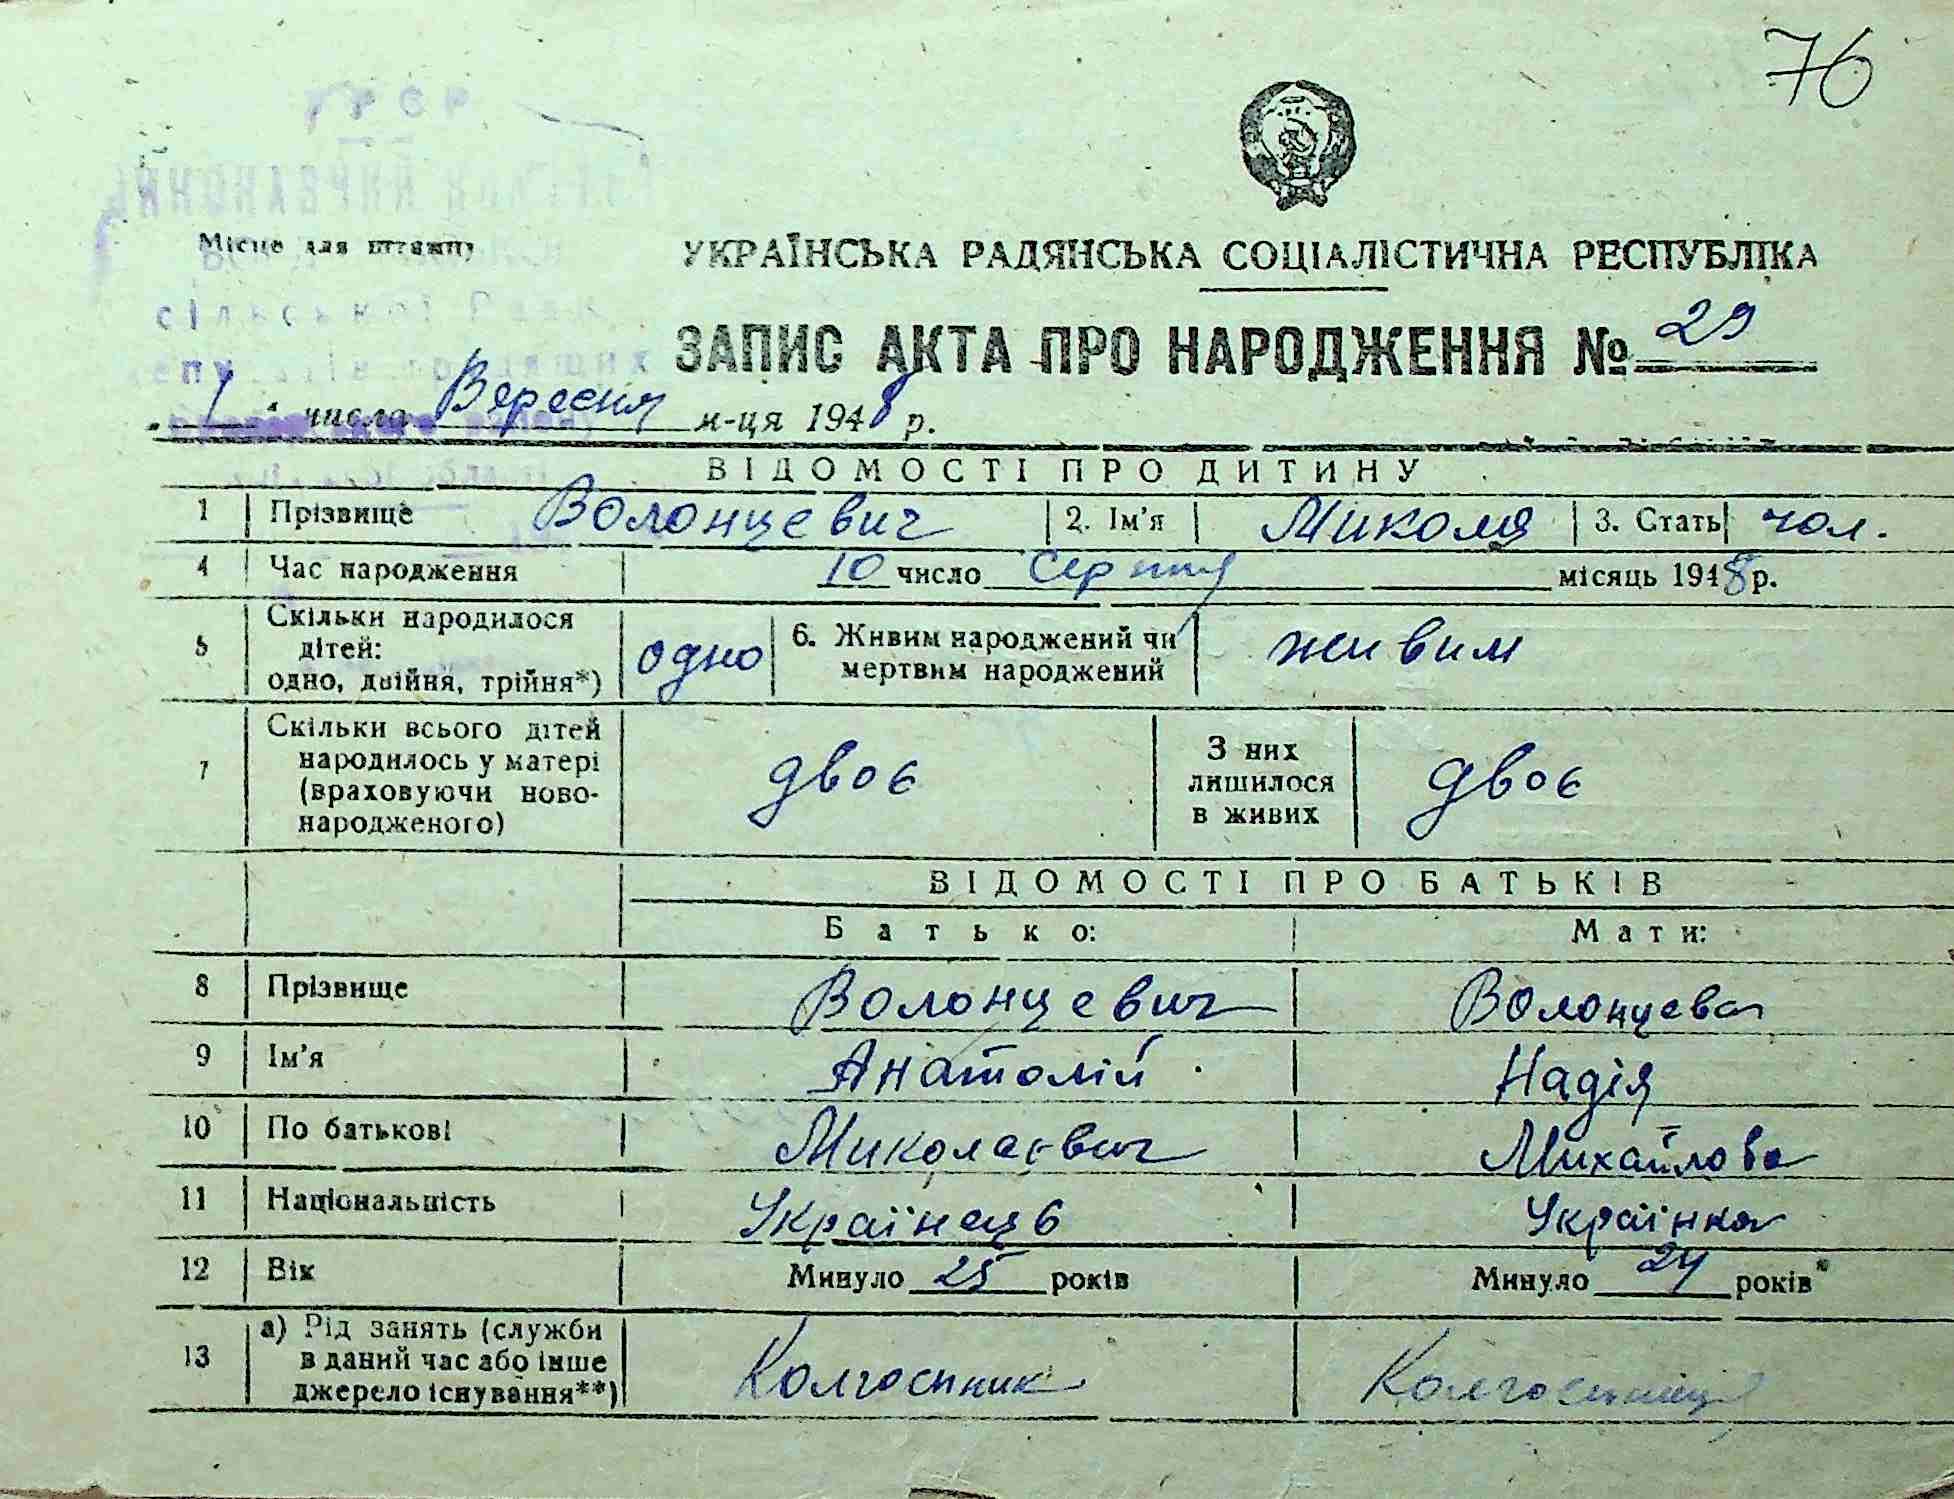 76
УРСР
ВИКОНАВЧИЙ КОМІТЕТ
Місце для штампу
сільської Ради
депутатів трудящих
УКРАЇНСЬКА РАДЯНСЬКА СОЦІАЛІСТИЧНА РЕСПУБЛІКА
ЗАПИС АКТА ПРО НАРОДЖЕННЯ № 29
1 числа Вересня м-ця 1948 р.
ВІДОМОСТІ ПРО ДИТИНУ
1 Прізвище Волонцевич 2. Ім'я Микола 3. Стать чол.
4 Час народження 10 число Серпня місяць 1948 р.
5 Скільки народилося дітей: одно, двійня, трійня*) одно 6. Живим народжений чи мертвим народжений живим
7 Скільки всього дітей народилось у матері (враховуючи ново-народженого) двоє З них лишилося в живих двоє
ВІДОМОСТІ ПРО БАТЬКІВ
Батько: Мати:
8 Прізвище Волонцевич Волонцева
9 Ім'я Анатолій Надія
10 По батькові Миколаєвич Михайлова
11 Національність Українець Українка
12 Вік Минуло 25 років Минуло 24 років
13 а) Рід занять (служби в даний час або інше джерело існування**) Колгоспник Колгоспниця